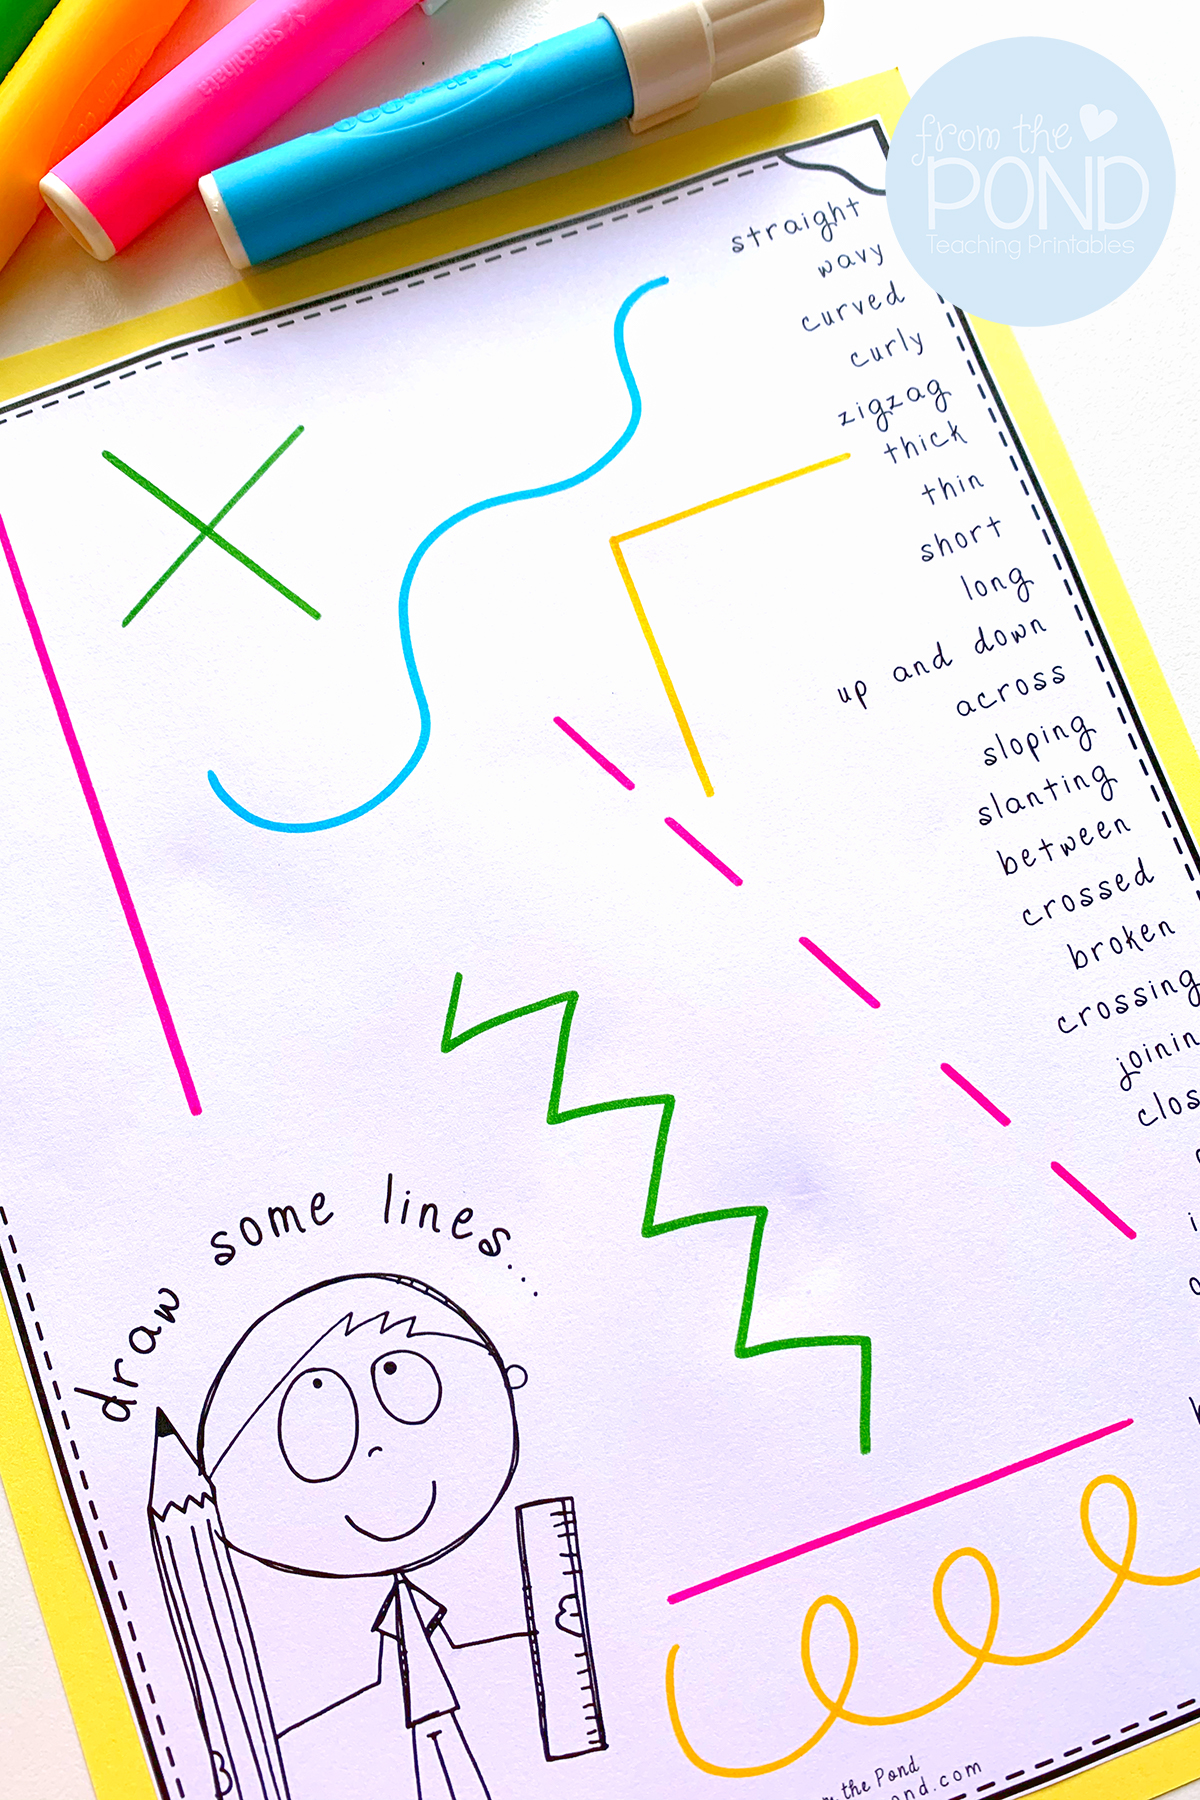 from the
POND
Teaching Printables
straight
wavy
curved
curly
zigzag
thick
thin
short
long
up and down
across
sloping
slanting
between
crossed
broken
crossing
draw some lines...
the Pond